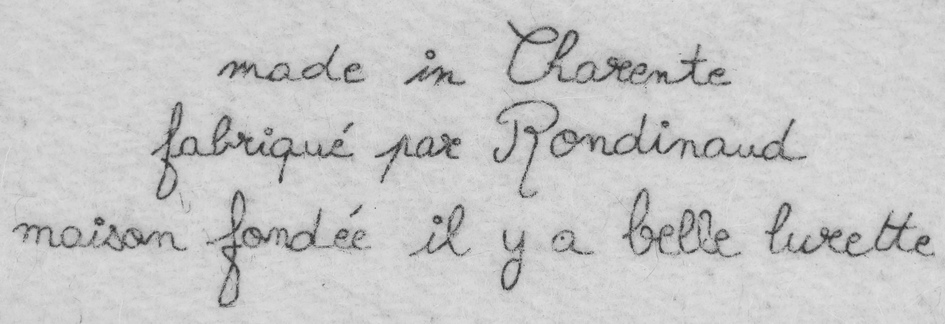 made in Charente
fabriqué par Rondinaud
maison fondée il y a belle lurette